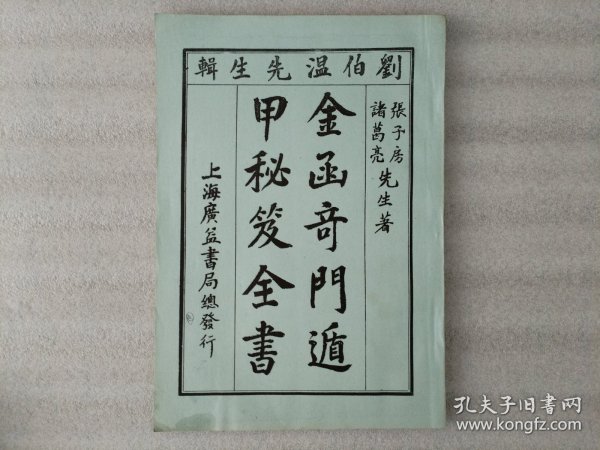 劉伯温先生輯
張子房
諸葛亮
先生著
金函奇門遁
甲秘笈全書
上海廣益書局總發行
孔夫子旧书网
www.kongfz.com